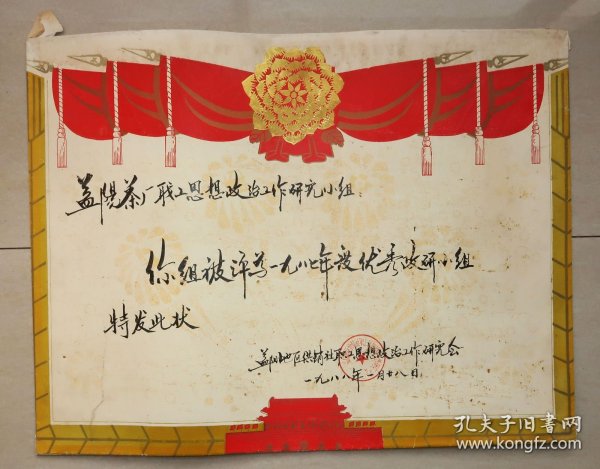 益阳茶厂职工思想政治工作研究小组:
你组被评为一九八七年度优秀政研小组
特发此状
益阳地区供销社职工思想政治工作研究会
一九八八年一月廿八日
孔夫子旧书网
www.kongfz.com